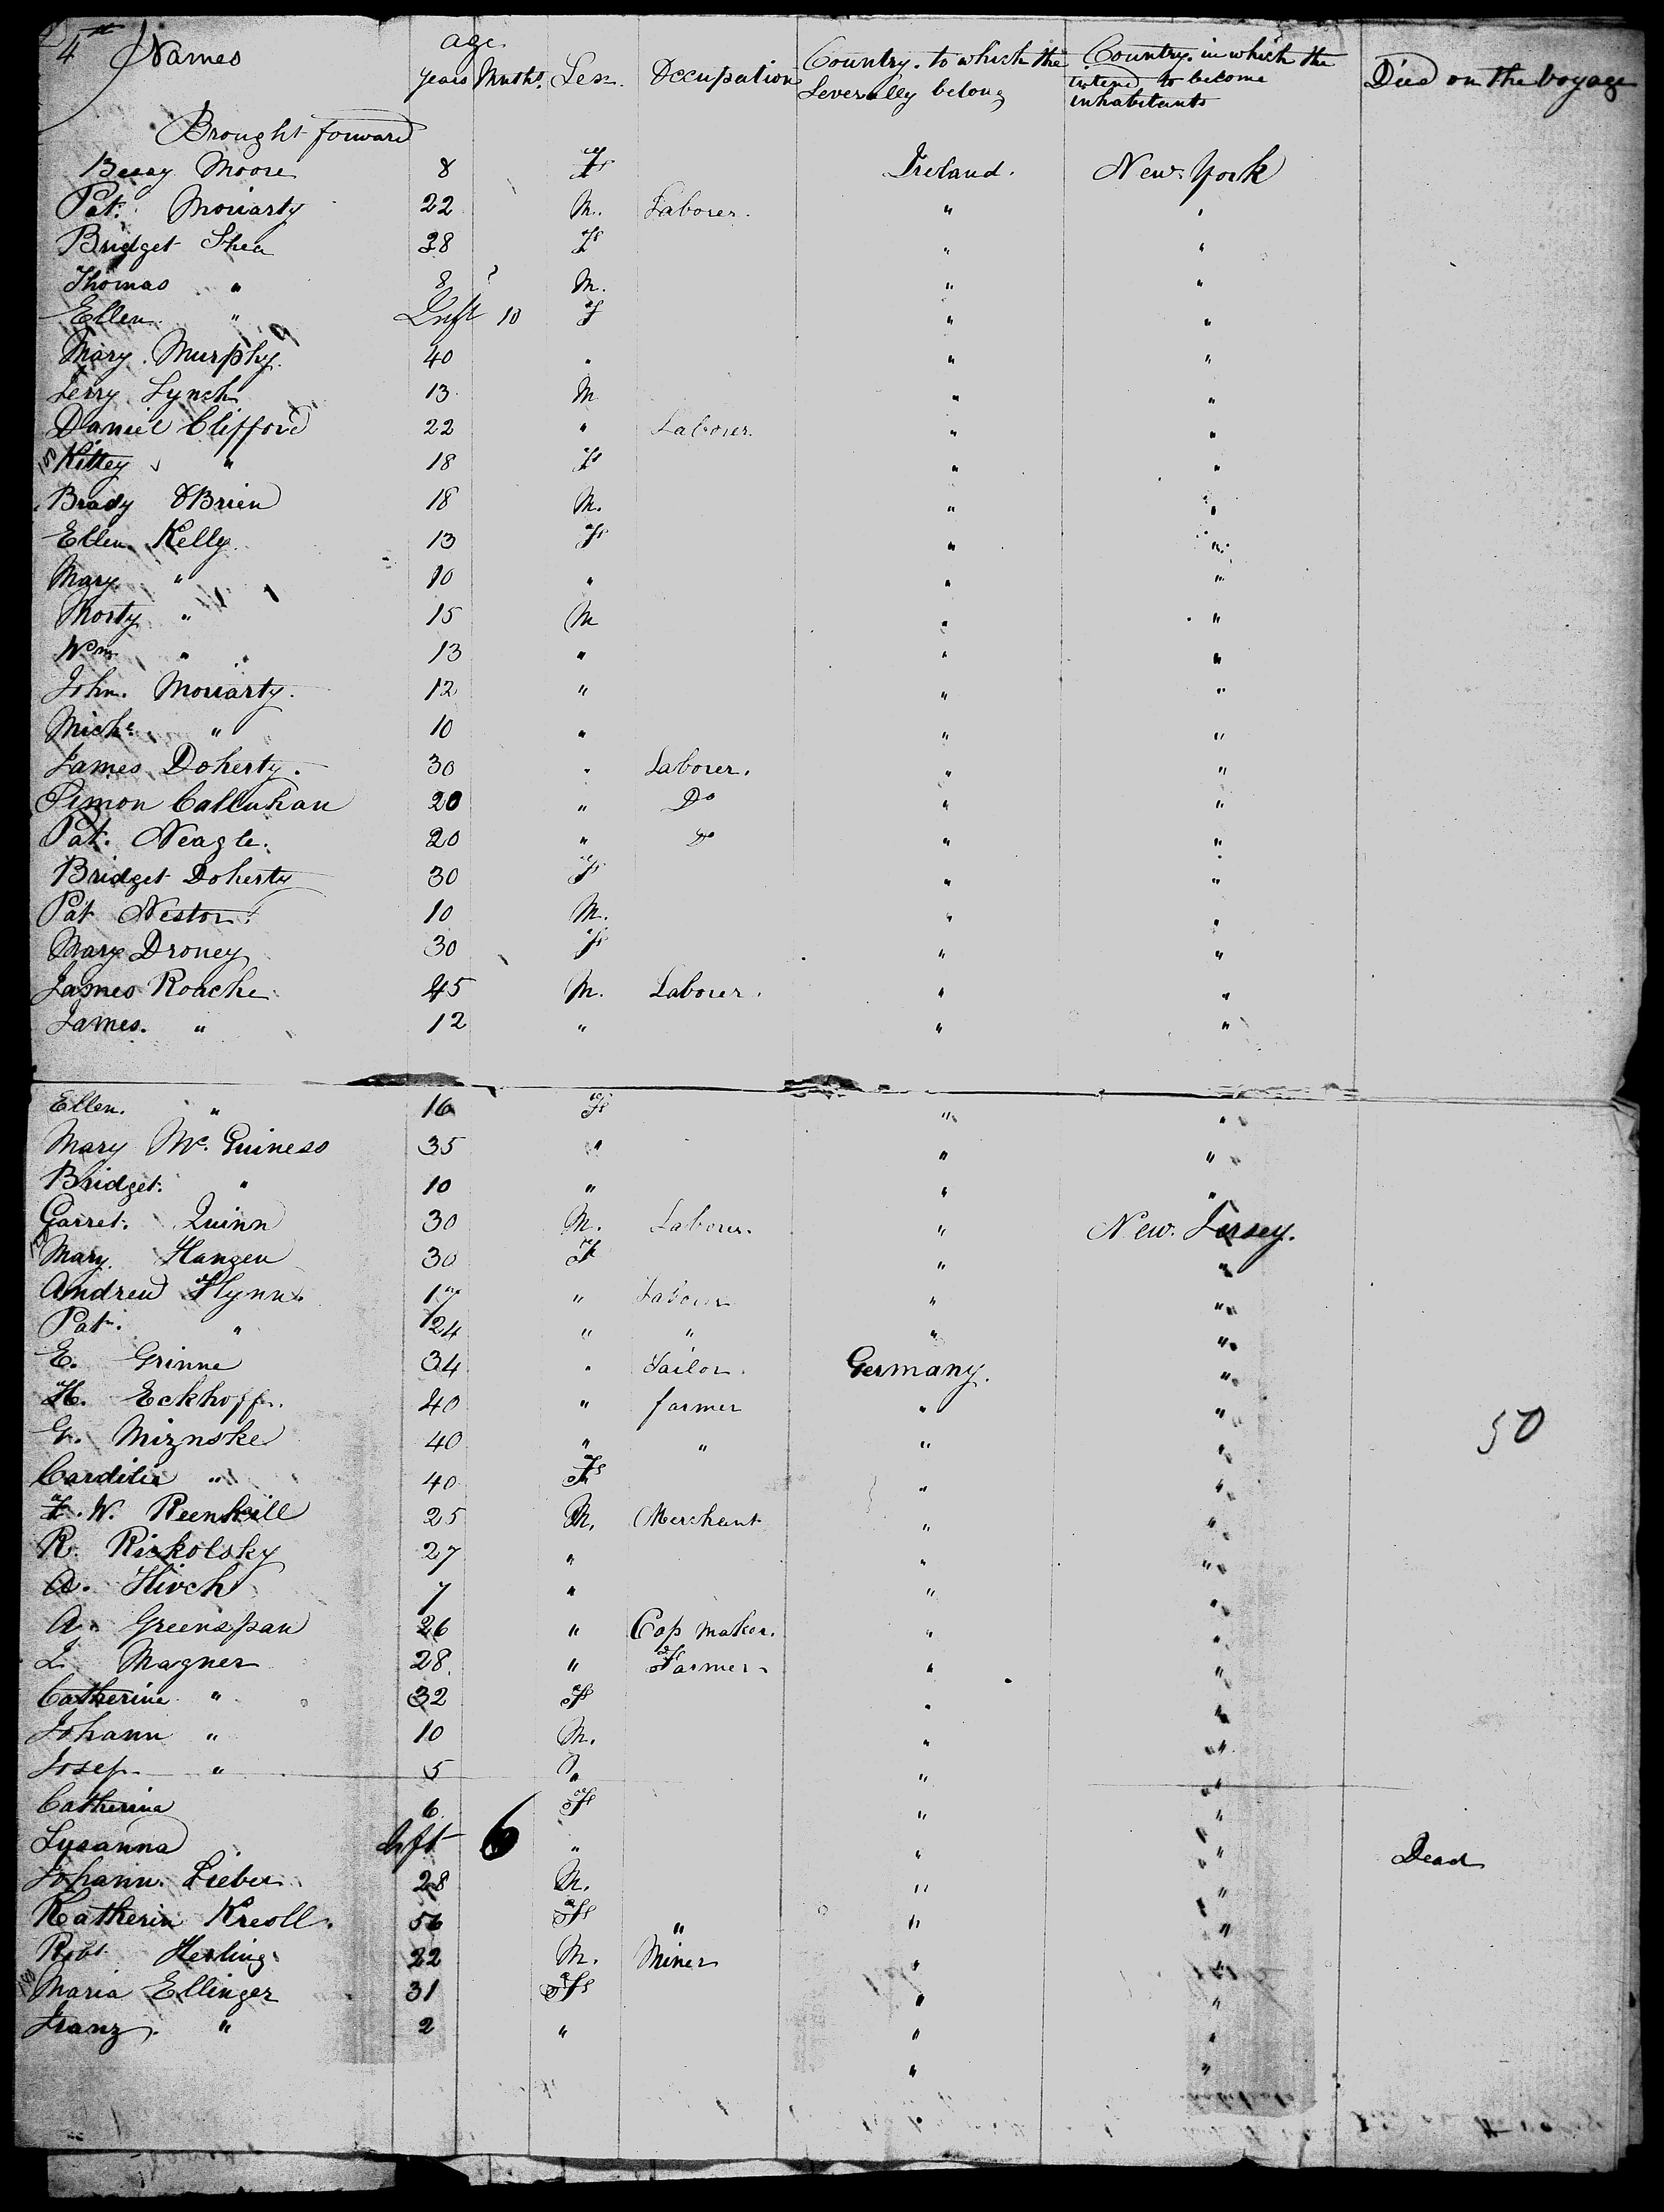 4th Names age Years Mnths. Sex. Occupation Country. to which the Severally belong Country. in which the intend to become inhabitants Died on the Voyage
Brought forward
Bessy Moore 8 F Ireland. New York
Pat. Moriarty 22 M. Laborer. " "
Bridget Shea 38 F " "
Thomas " 8 M. " "
Ellen " Inft 10 F " "
Mary. Murphy. 40 " " "
Jerry Lynch 13 M " "
Daniel Clifford 22 " Laborer. " "
Kittey " 18 F " "
Brady O'Brien 18 M. " "
Ellen Kelly 13 F " "
Mary " 10 " " "
Morty " 15 M " "
Wm. " 13 " " "
John. Moriarty. 12 " " "
Michl. " 10 " " "
James Doherty. 30 " Laborer. " "
Simon Callahan 20 " Do " "
Pat. Neagle. 20 " Do " "
Bridget Doherty 30 F " "
Pat Nestor 10 M. " "
Mary Droney 30 F " "
James Roache 45 M. Laborer. " "
James. " 12 " " "
Ellen. " 16 F " "
Mary Mc. Guiness 35 " " "
Bridget. " 10 " " "
Garret. Quinn 30 M. Laborer. " New. Jersey.
Mary. Hangen 30 F " "
Andrew Flynn 17 " Laborer " "
Pat. " 24 " " " "
E. Grinne 34 " Tailor. Germany. "
H. Eckhoff. 40 " farmer " "
G. Miznske 40 " " " " 50
Carditia " 40 F " "
F. W. Reenkill 25 M. Merchant " "
R. Riskolsky 27 " " "
A. Hirch 7 " " "
A. Greenspan 26 " Cap maker. " "
L. Magner 28. " Farmer " "
Catherine " 32 F " "
Johann " 10 M. " "
Josep " 5 " " "
Catherina 6 F " "
Susanna Inft 6 " " " Dead
Johann. Lieber 28 M. " "
Katherin Kreoll. 56 F " " "
Robt Herling 22 M. Miner " "
Maria Ellinger 31 F " "
Franz. " 2 " " "
" "